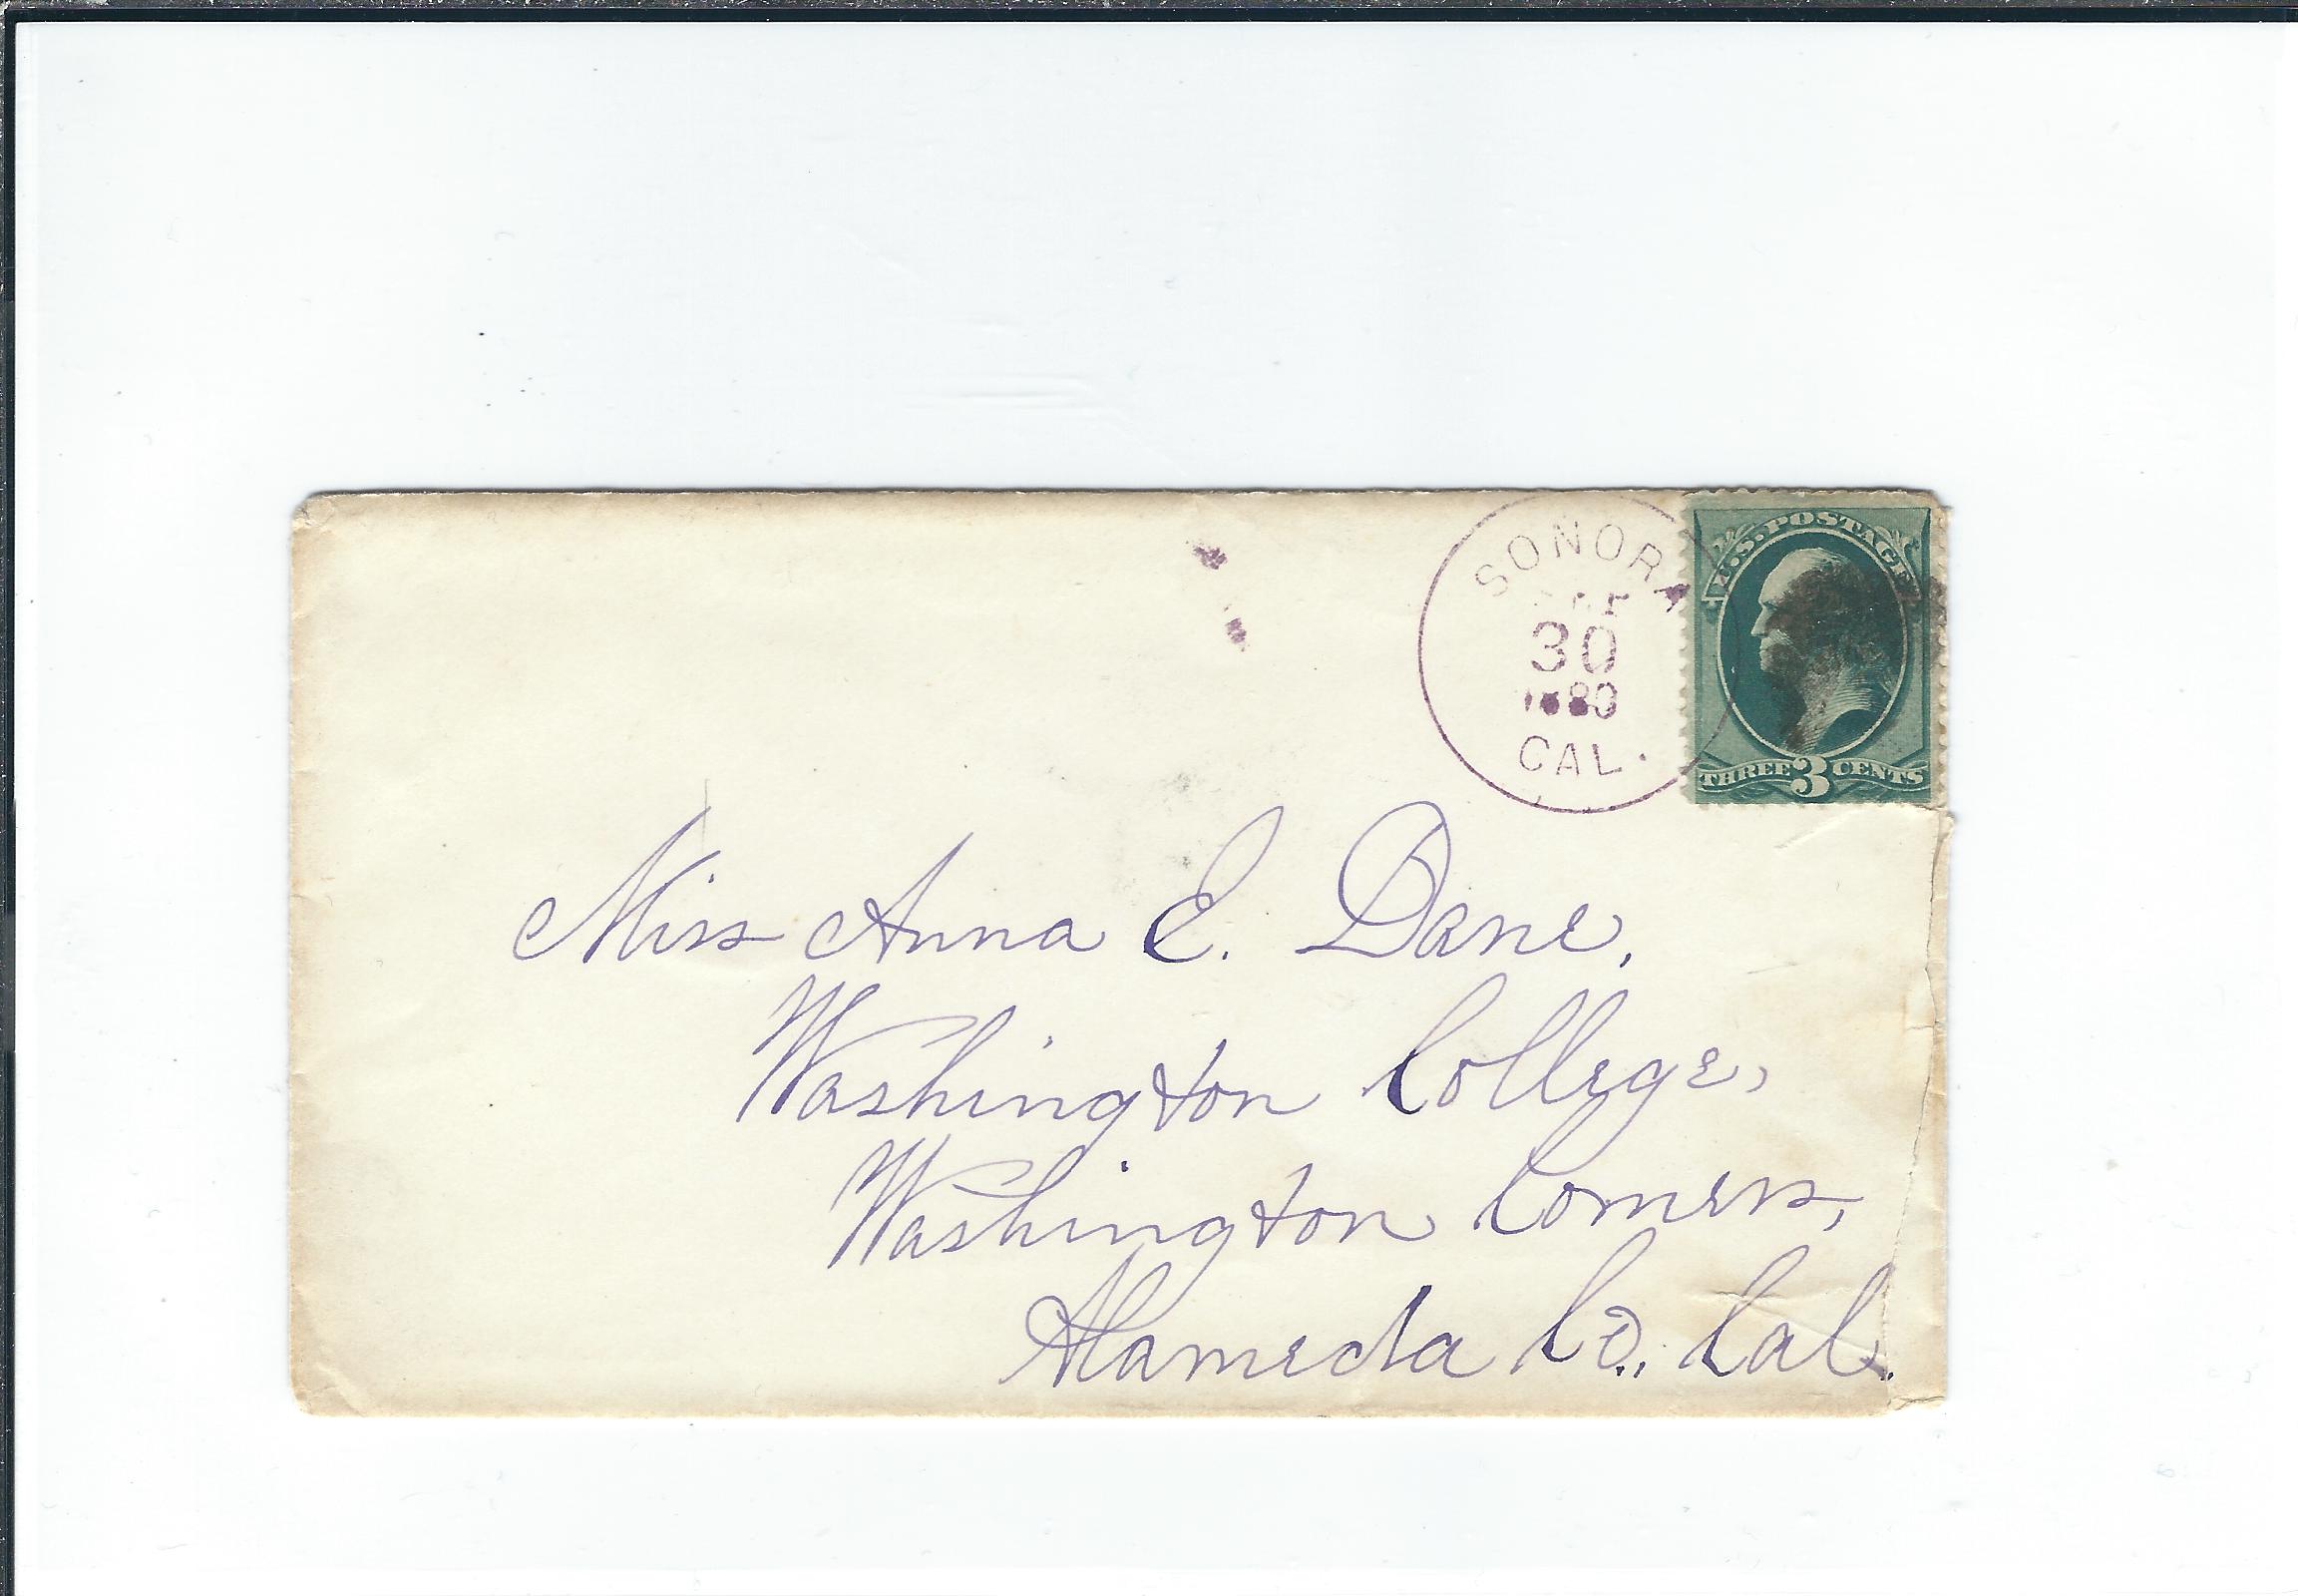 SONORA
30
1880
CAL.
U.S. POSTAGE
THREE 3 CENTS
Miss Anna E. Dane,
Washington College,
Washington Corners,
Alameda Co., Cal.